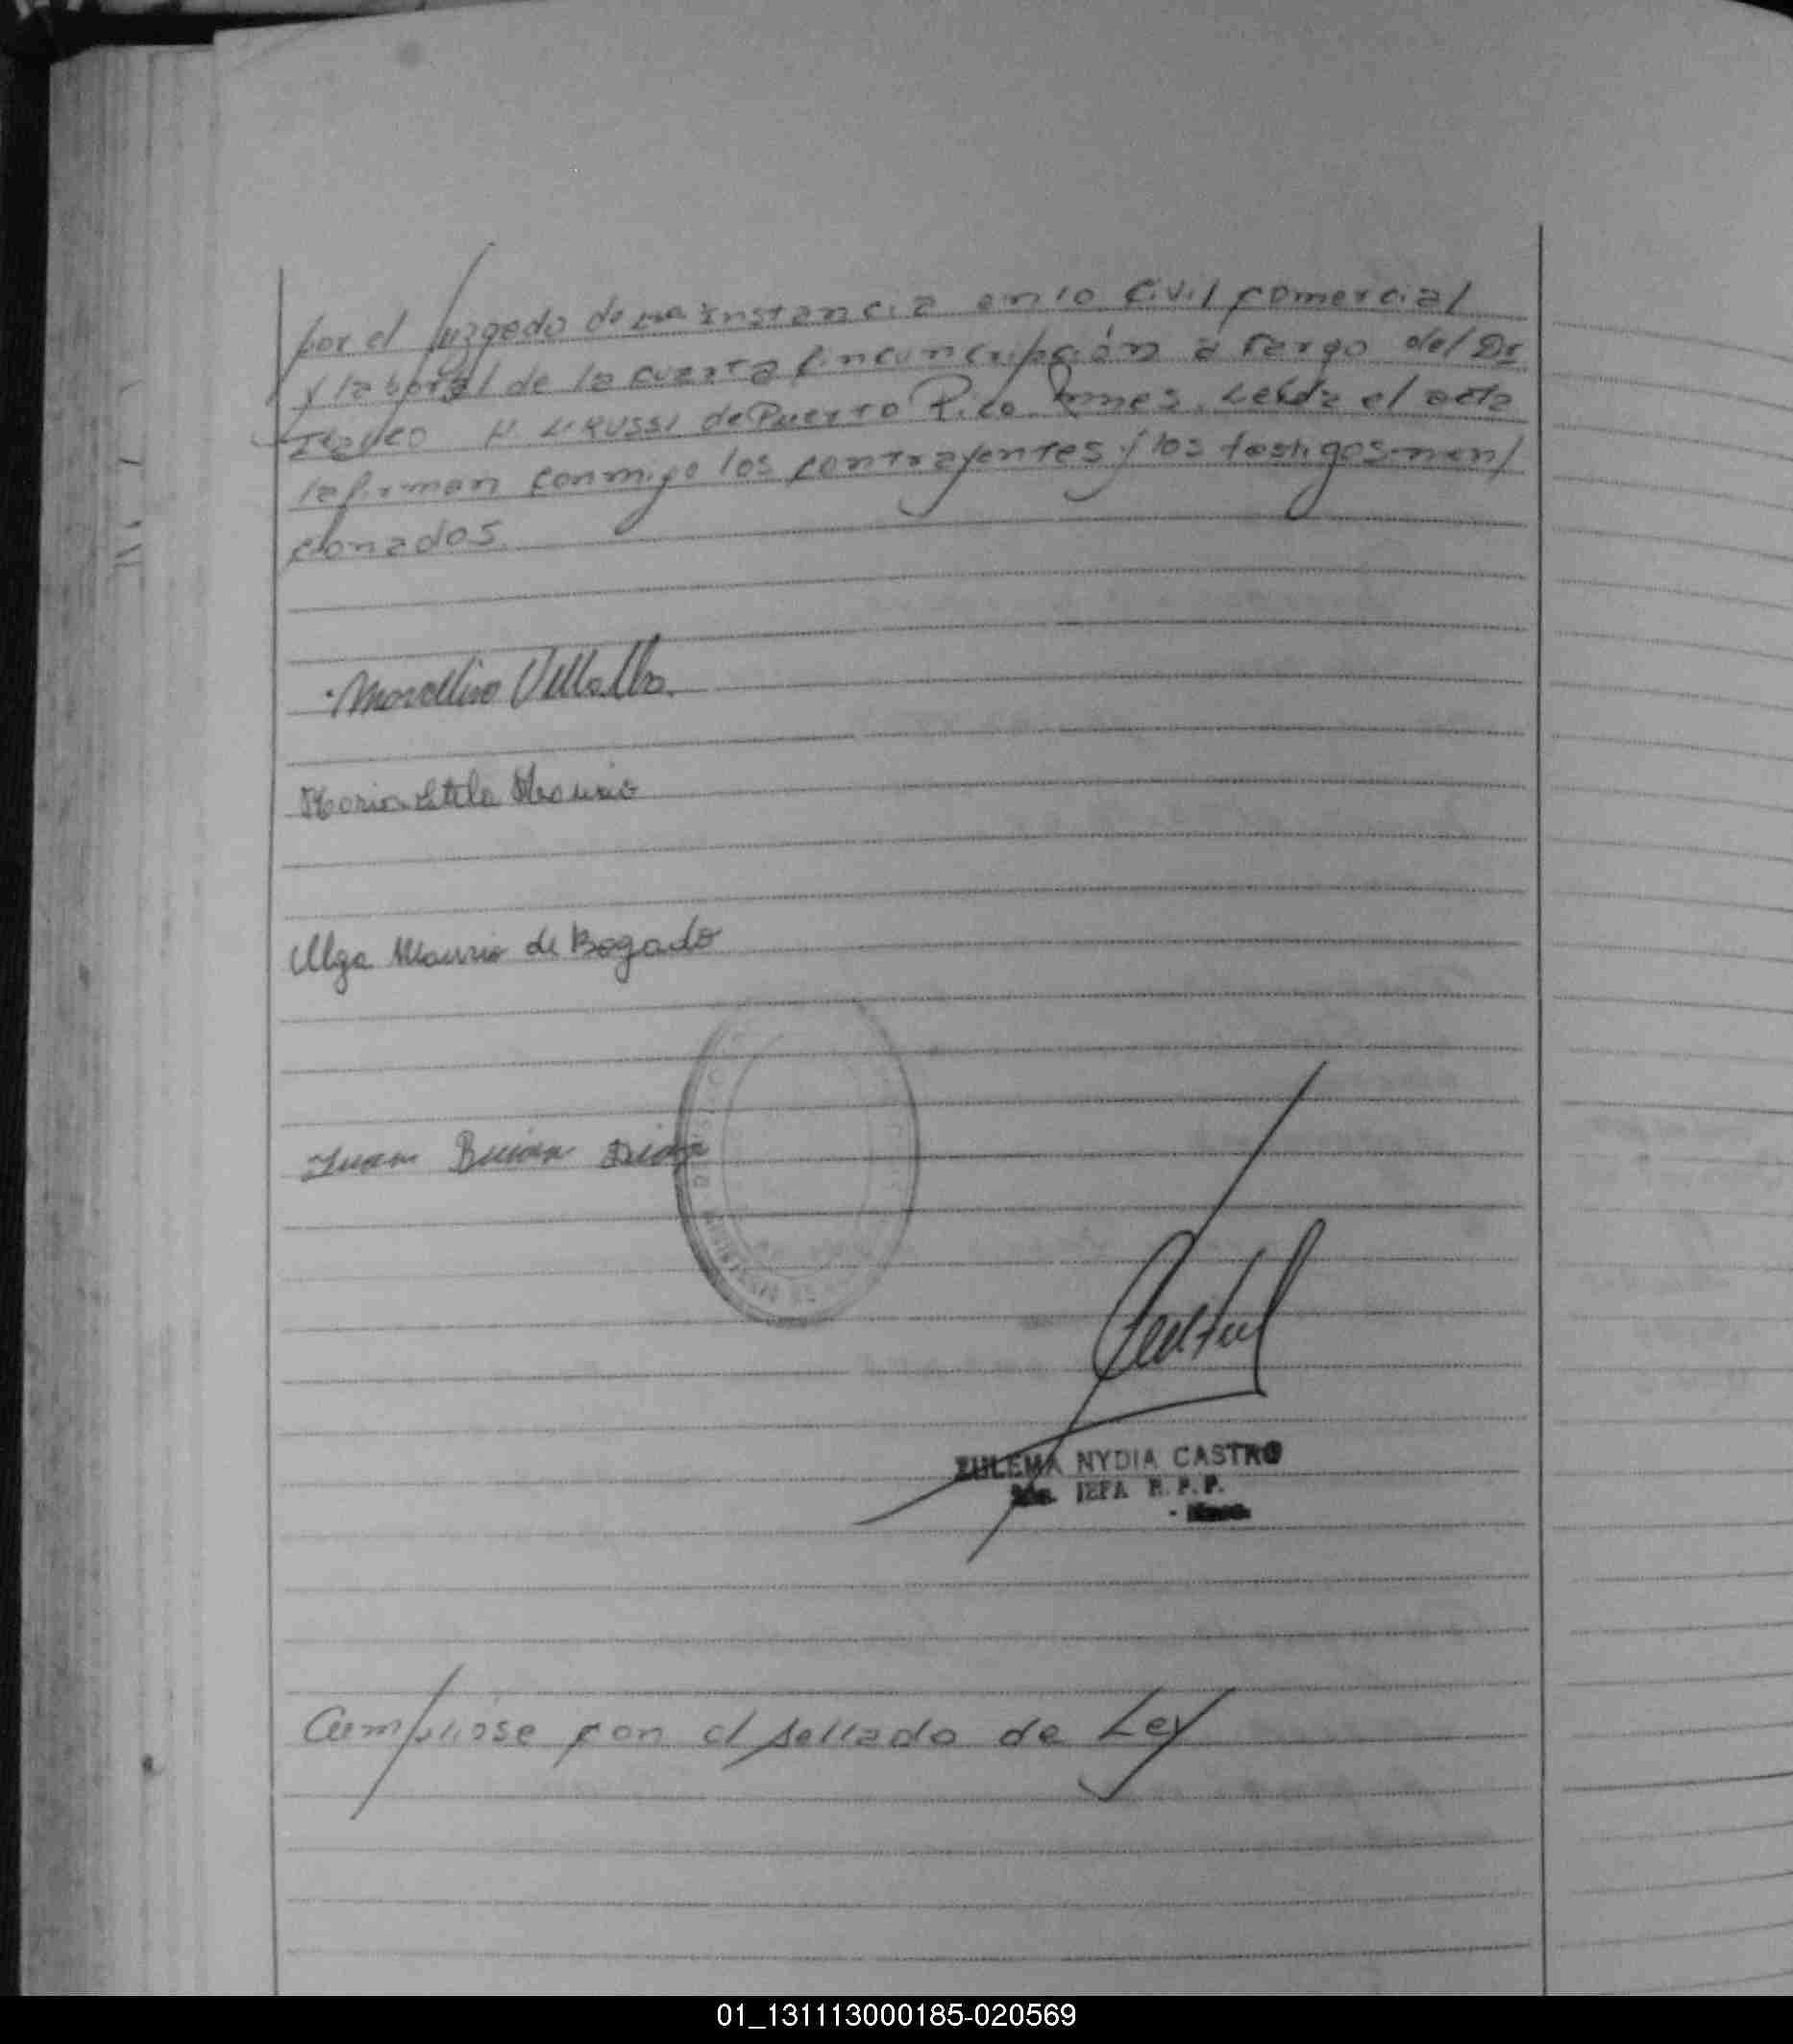 por el juzgado de 1ra instancia en lo Civil Comercial
y laboral de la cuarta Circuncripción a cargo del Dr
de Puerto Rico Mnes. Leída el acta
la firman conmigo los contrayentes y los testigos men/
cionados.
Marcelino Villalba.
Maria Stela Mauricio
Olga Mauricio de Bogado
Juan Diaz
ZULEMA NYDIA CASTRO
JEFA R.P.P.
Cumpliose con el sellado de Ley
01_131113000185-020569